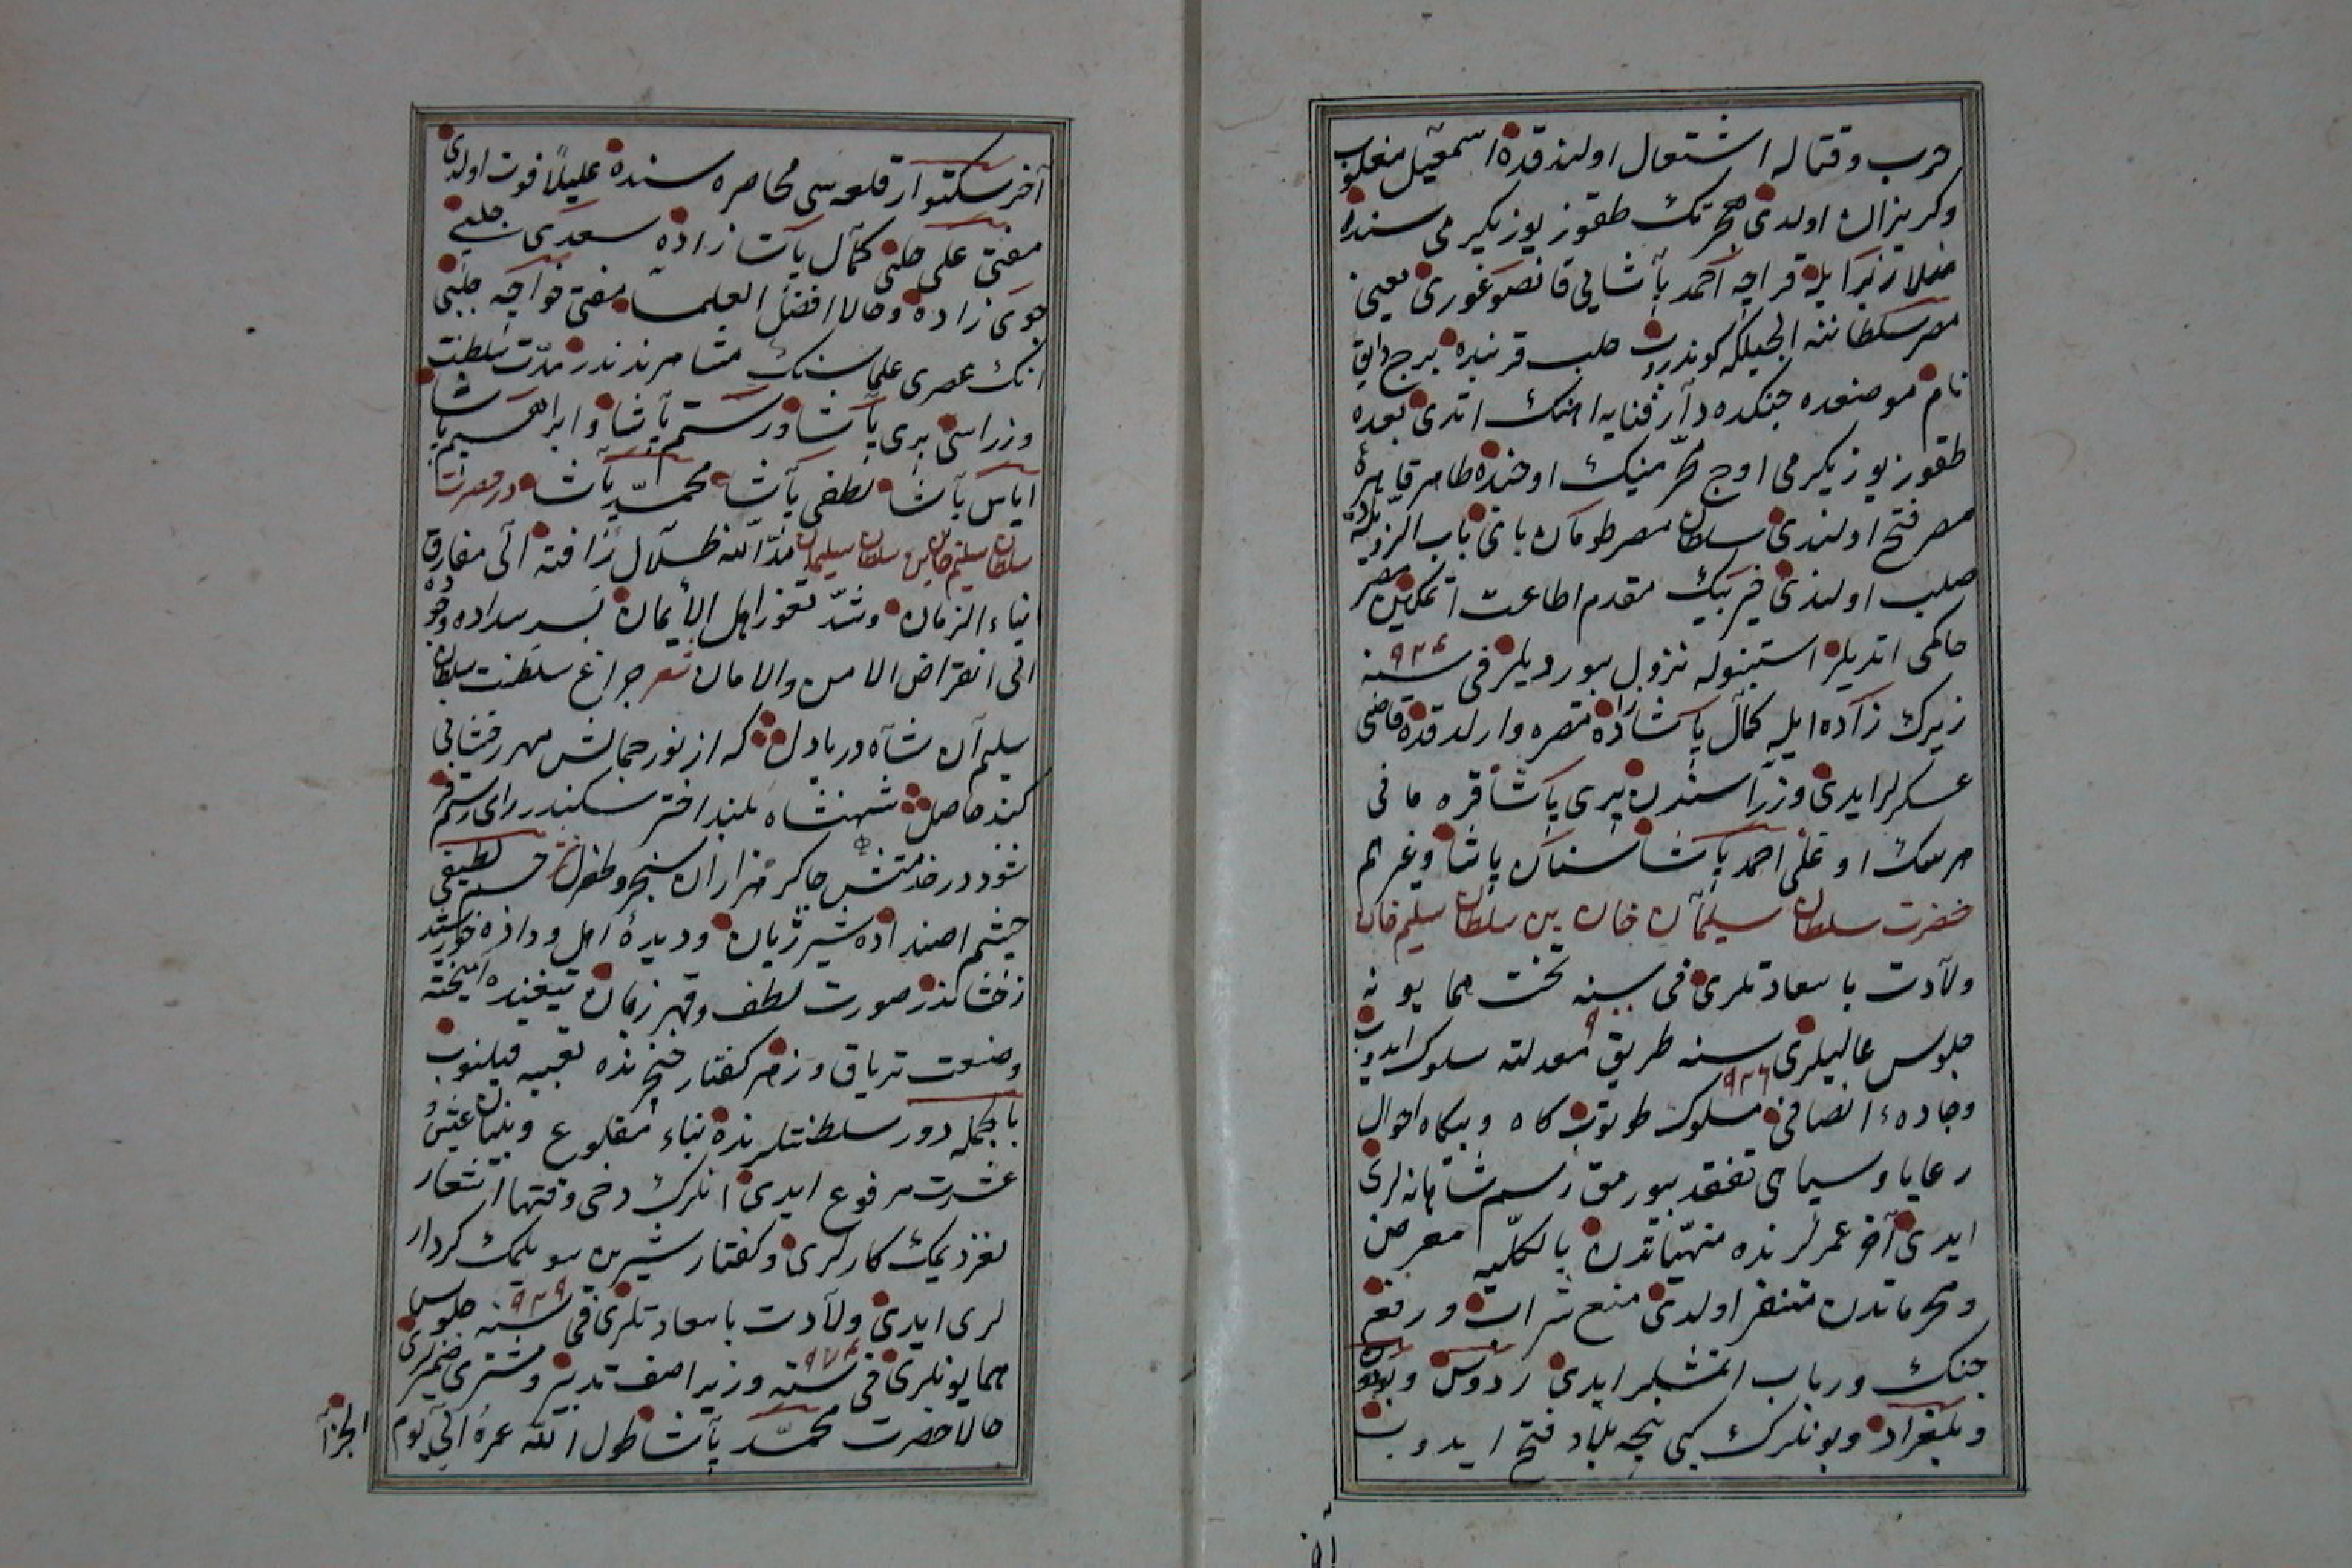 حرب و قتاله اشتعال اولندقده اسمعیل مغلوب
و کریزان اولدی محرمک طقوز یوز یکرمی سنده
قراجه احمد پاشایی قانصو غوری یعنی
مصر سلطاننه ایلچیلکه کوندروب حلب قربنده برج دابق
نام موضعده جنکده دار فنایه اهنك اتدی بعده
طقوز یوز یکرمی اوج محرمینک اونده طاهر قاهره
مصر فتح اولندی سلطان مصر طومان بای باب الزویله ده
صلب اولندی خیر بیك مقدم اطاعت اتمکین مصر
حاکمی اتدیلر استنبوله نزول بیوردیلر فی سنه ۹۲۴
زیرك زاده ایله کمال پاشا زاده مصره وارلدقده قاضی
عسکرلر ایدی وزراسندن پیری پاشا قره مانی
هرسك اوغلی احمد پاشا سنان پاشا و غیرهم
حضرت سلطان سلیمان خان بن سلطان سلیم خان
ولادت با سعادتلری فی سنه ۹ تخت همایونه
جلوس عالیلری سنه ۹۲۶ طریق معدلته سلوك ایدوب
و جاده انصافی مسلوك طوتوب کاه و بیکاه احوال
رعایا و سپاهی تفقد بیورمق رسم شاهانه لری
ایدی آخر عمرلرنده منهیاتدن بالکلیه معرض
و محرماتدن متنفر اولدی منع شراب و رفع
جنك و رباب اتمشلر ایدی ردوس و بودون
و بلغراد و بونلرك کبی نیجه بلاد فتح ایدوب
آخر
آخر سکتوار قلعه سی محاصره سنده علیلاً فوت اولدی
مفتی علی چلبی کمال پاشا زاده سعدی چلبی
جوی زاده و حالا افضل العلما مفتی خواجه چلبی
انك عصری علماسنك مشاهرندندر مدت سلطنت
وزراسی پیری پاشا و رستم پاشا و ابراهیم پاشا
ایاس پاشا لطفی پاشا محمد پاشا در حضرت
سلطان سلیم خان بن سلطان سلیمان مد الله ظلال رافته الی مفارق
ابناء الزمان و شد ثغور اهل الایمان بسر سداده و جوده
الی انقراض الامن والامان شعر چراغ سلطنت سلطان
سلیم آن شاه دریادل که از نور جمالش مهر رخشانی
کند حاصل شهنشاه بلند اختر سکندر رای رستم فر
شود در خدمتش چاکر هزاران سنجر و طغرل جسم لطیفی
چشم شیر ژیان و دیده اهل خورشید
رخشاندر صورت لطف و قهر زمان تیغنده آمیخته
و صنعت تریاق و زهر کفتار خنجرنده تعبیه قیلنوب
بالجمله دور سلطنتلرنده بناء مقلوع و بنیان عیش و
عشرت مرفوع ایدی انلرك دخی وقتها اشعار
نغز دیمك کارلری و کفتار شیرین سویلمك کردار
لری ایدی ولادت با سعادتلری فی سنه ۹۲۹ جلوس
همایونلری فی سنه ۹۷۴ وزیر اصف تدبیر و مشتری ضمیرلری
حالا حضرت محمد پاشا طول الله عمره الی یوم
الجزا